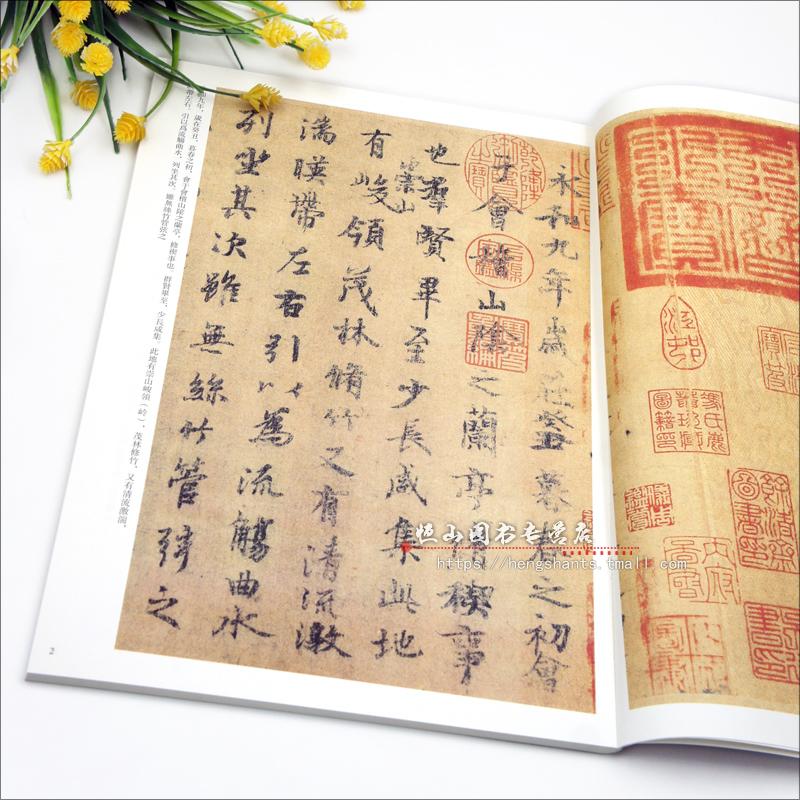 永和九年歲在癸丑暮春之初會
于會稽山陰之蘭亭脩稧事
也羣賢畢至少長咸集此地
有崇山峻領茂林脩竹又有清流激
湍暎帶左右引以為流觴曲水
列坐其次雖無絲竹管弦之
和九年，歲在癸丑，暮春之初，會于會稽山陰之蘭亭，修禊事也。群賢畢至，少長咸集。此地有崇山峻領（岭），茂林修竹，又有清流激湍，
帶左右，引以爲流觴曲水，列坐其次。雖無絲竹管弦之
2
恒山图书专营店
https://hengshants.tmall.com